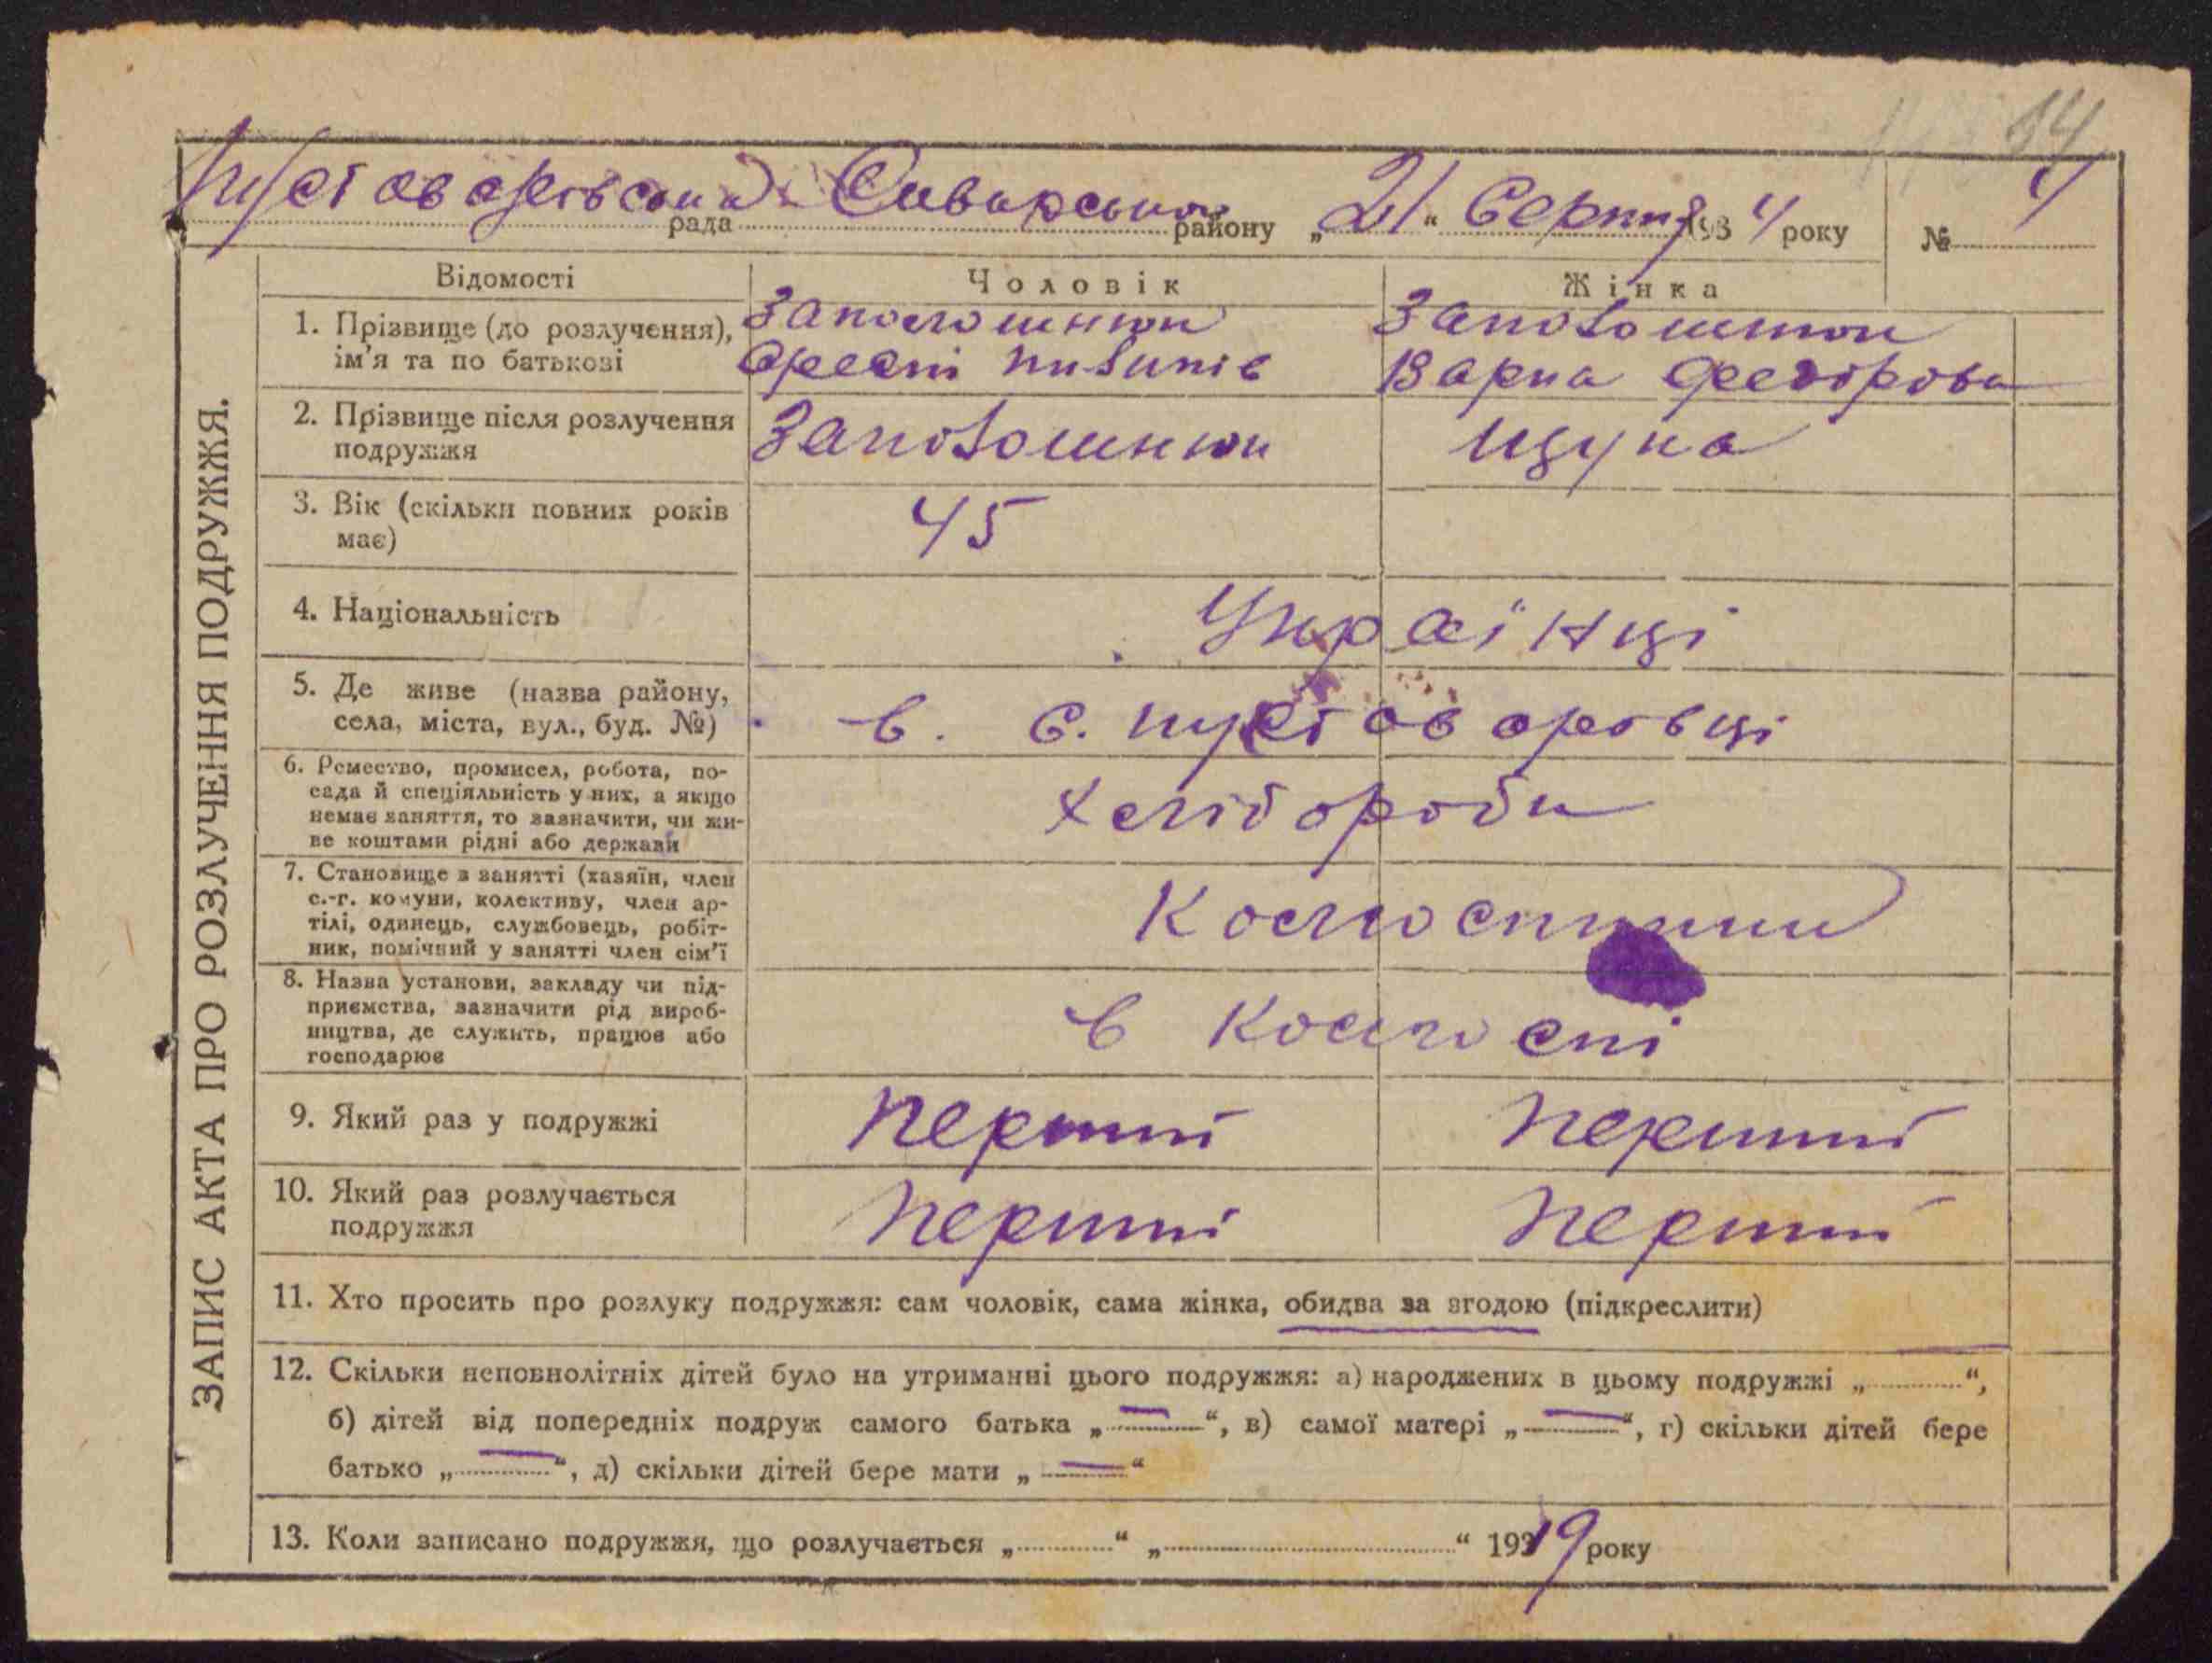 14
Пустоваровська рада Сквирського району „21“ Серпня 1934 року № 4
ЗАПИС АКТА ПРО РОЗЛУЧЕННЯ ПОДРУЖЖЯ.
Відомості Чоловік Жінка
1. Прізвище (до розлучення), Заполошнюк Заполошнюк
ім'я та по батькові Пилипів Варка Федорова
2. Прізвище після розлучення Заполошнюк Щука
подружжя
3. Вік (скільки повних років 45
має)
4. Національність Українці
5. Де живе (назва району, в. с. Пустоваровці
села, міста, вул., буд. №)
6. Ремество, промисел, робота, по-
сада й спеціяльність у них, а якщо Хлібороби
немає заняття, то зазначити, чи жи-
ве коштами рідні або держави
7. Становище в занятті (хазяїн, член
с.-г. комуни, колективу, член ар- Колгоспники
тілі, одинець, службовець, робіт-
ник, помічний у занятті член сім'ї
8. Назва установи, закладу чи під-
приємства, зазначити рід вироб-
ництва, де служить, працює або в колгоспі
господарює
9. Який раз у подружжі перший перший
10. Який раз розлучається перший перший
подружжя
11. Хто просить про розлуку подружжя: сам чоловік, сама жінка, обидва за згодою (підкреслити)
12. Скільки неповнолітніх дітей було на утриманні цього подружжя: а) народжених в цьому подружжі „—“,
б) дітей від попередніх подруж самого батька „—“, в) самої матері „—“, г) скільки дітей бере
батько „—“, д) скільки дітей бере мати „—“
13. Коли записано подружжя, що розлучається „ “ „ “ 1919 року